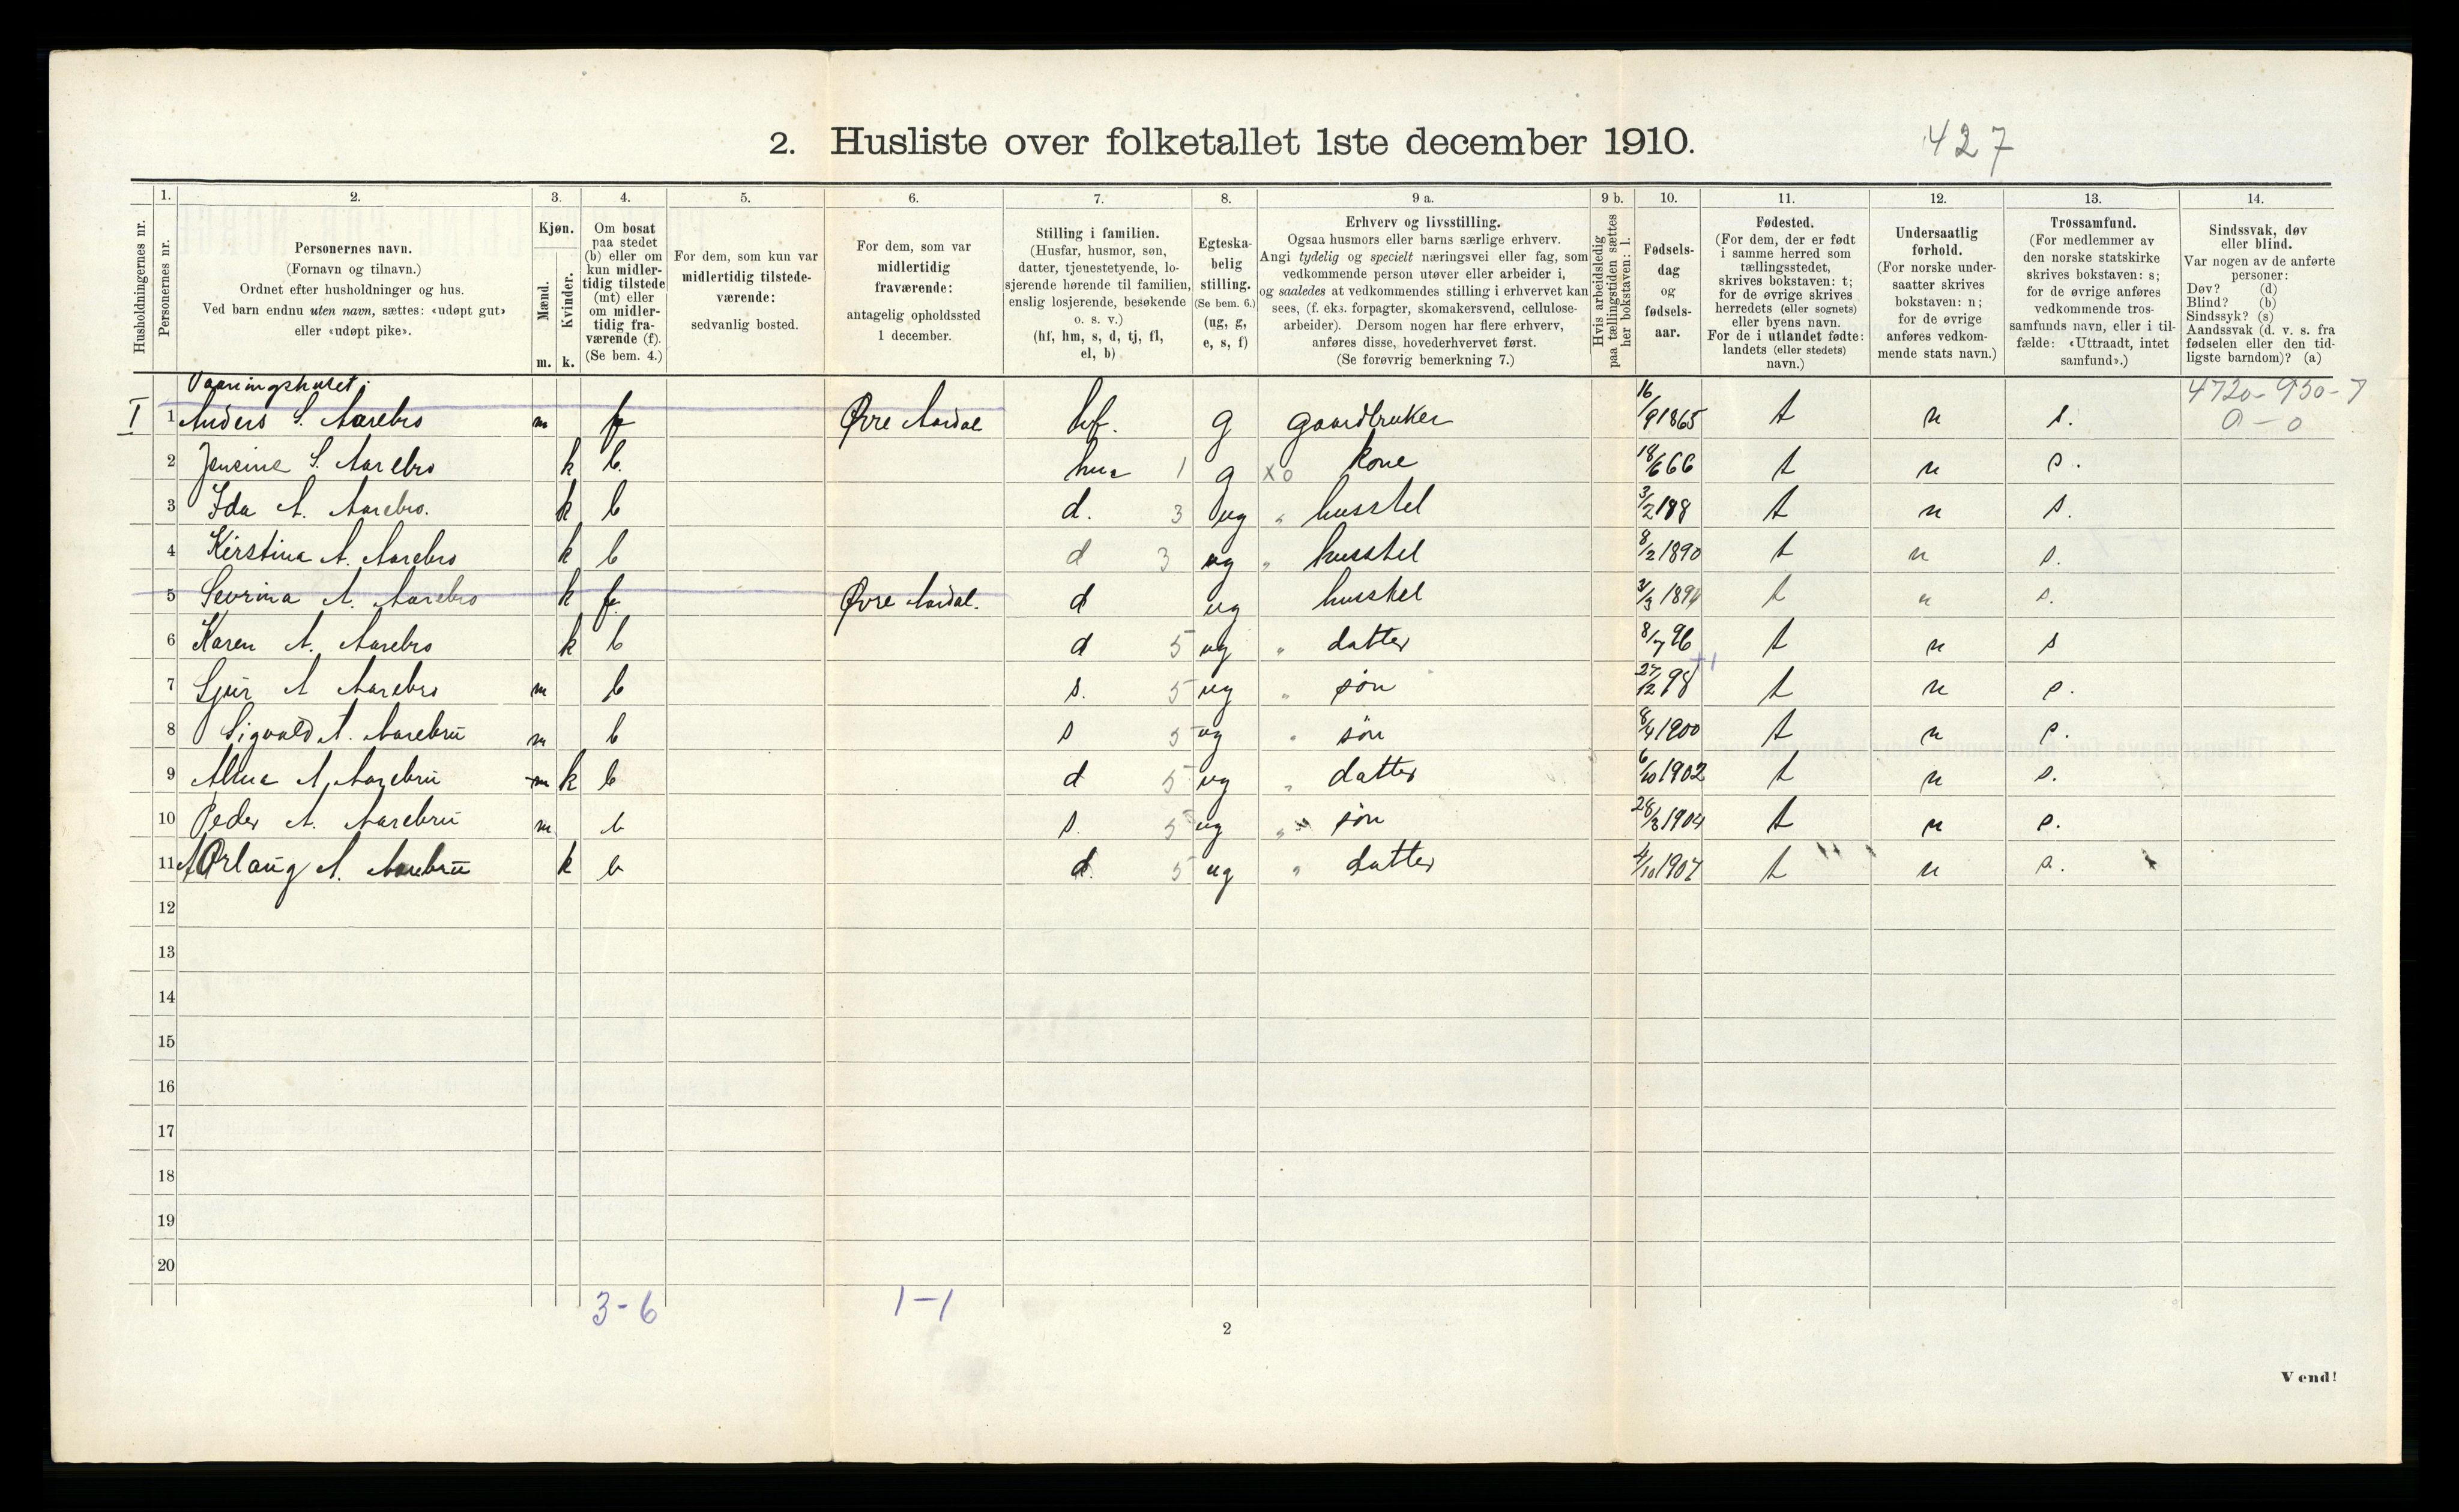 2. Husliste over folketallet 1ste december 1910.
427
1. 2. 3. 4. 5. 6. 7. 8. 9 a. 9 b. 10. 11. 12. 13. 14.
Husholdningernes nr.
Personernes nr.
Personernes navn.
(Fornavn og tilnavn.)
Ordnet efter husholdninger og hus.
Ved barn endnu uten navn, sættes: «udøpt gut»
eller «udøpt pike».
Kjøn.
Mænd.
Kvinder.
m. k.
Om bosat
paa stedet
(b) eller om
kun midler-
tidig tilstede
(mt) eller
om midler-
tidig fra-
værende (f).
(Se bem. 4.)
For dem, som kun var
midlertidig tilstede-
værende:
sedvanlig bosted.
For dem, som var
midlertidig
fraværende:
antagelig opholdssted
1 december.
Stilling i familien.
(Husfar, husmor, søn,
datter, tjenestetyende, lo-
sjerende hørende til familien,
enslig losjerende, besøkende
o. s. v.)
(hf, hm, s, d, tj, fl,
el, b)
Egteska-
belig
stilling.
(Se bem. 6.)
(ug, g,
e, s, f)
Erhverv og livsstilling.
Ogsaa husmors eller barns særlige erhverv.
Angi tydelig og specielt næringsvei eller fag, som
vedkommende person utøver eller arbeider i,
og saaledes at vedkommendes stilling i erhvervet kan
sees, (f. eks. forpagter, skomakersvend, cellulose-
arbeider). Dersom nogen har flere erhverv,
anføres disse, hovederhvervet først.
(Se forøvrig bemerkning 7.)
Hvis arbeidsledig
paa tællingstiden sættes
her bokstaven: l.
Fødsels-
dag
og
fødsels-
aar.
Fødested.
(For dem, der er født
i samme herred som
tællingsstedet,
skrives bokstaven: t;
for de øvrige skrives
herredets (eller sognets)
eller byens navn.
For de i utlandet fødte:
landets (eller stedets)
navn.)
Undersaatlig
forhold.
(For norske under-
saatter skrives
bokstaven: n;
for de øvrige
anføres vedkom-
mende stats navn.)
Trossamfund.
(For medlemmer av
den norske statskirke
skrives bokstaven: s;
for de øvrige anføres
vedkommende tros-
samfunds navn, eller i til-
fælde: «Uttraadt, intet
samfund».)
Sindssvak, døv
eller blind.
Var nogen av de anførte
personer:
Døv? (d)
Blind? (b)
Sindssyk? (s)
Aandssvak (d. v. s. fra
fødselen eller den tid-
ligste barndom)? (a)
Vaaningshuset.
4720-930-7
0-0
I 1 Anders S. Aarebro m f Øvre Aardal hf. g gaardbruker 16/9 1865 t n s.
2 Jensine S. Aarebro k b. 1 g x0 kone 18/6 66 t n s.
3 Ida A. Aarebro. k b d. 3 ug " husstel 3/2 188 t n s.
4 Kirstina A. Aarebro k b d 3 ug " husstel 8/2 1890 t n s.
5 Sevrina A. Aarebro k f. Øvre Aardal. d ug husstel 3/3 1894 t n s.
6 Karen A. Aarebro k b d 5 ug " datter 8/7 96 t n s
7 Sjur A Aarebro m b s. 5 ug " søn 27/12 98 t n s.
8 Sigvald A. Aarebru m b s 5 ug " søn 8/4 1900 t n s.
9 Alma A, Aarebru m k b d 5 ug " datter 6/10 1902 t n s.
10 Peder A. Aarebru m b s. 5 ug " søn 28/3 1904 t n s.
11 Aarebru k b d. 5 ug " datter 4/10 1907 t n s.
12
13
14
15
16
17
18
19
20
3-6 1-1
2
Vend!